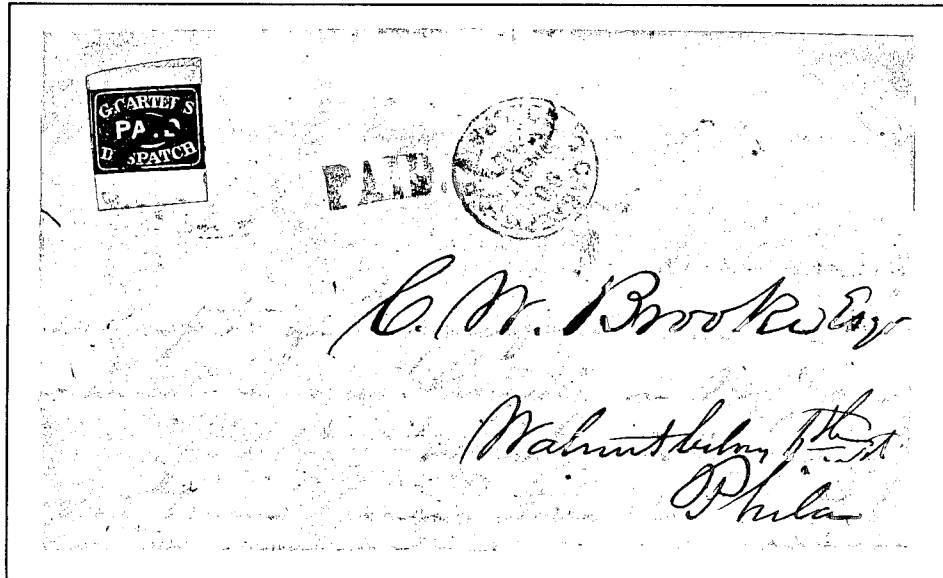 G. CARTER'S
PAID
DISPATCH
PAID
C. W. Brooke Esqr
Walnut below 6th st
Phila